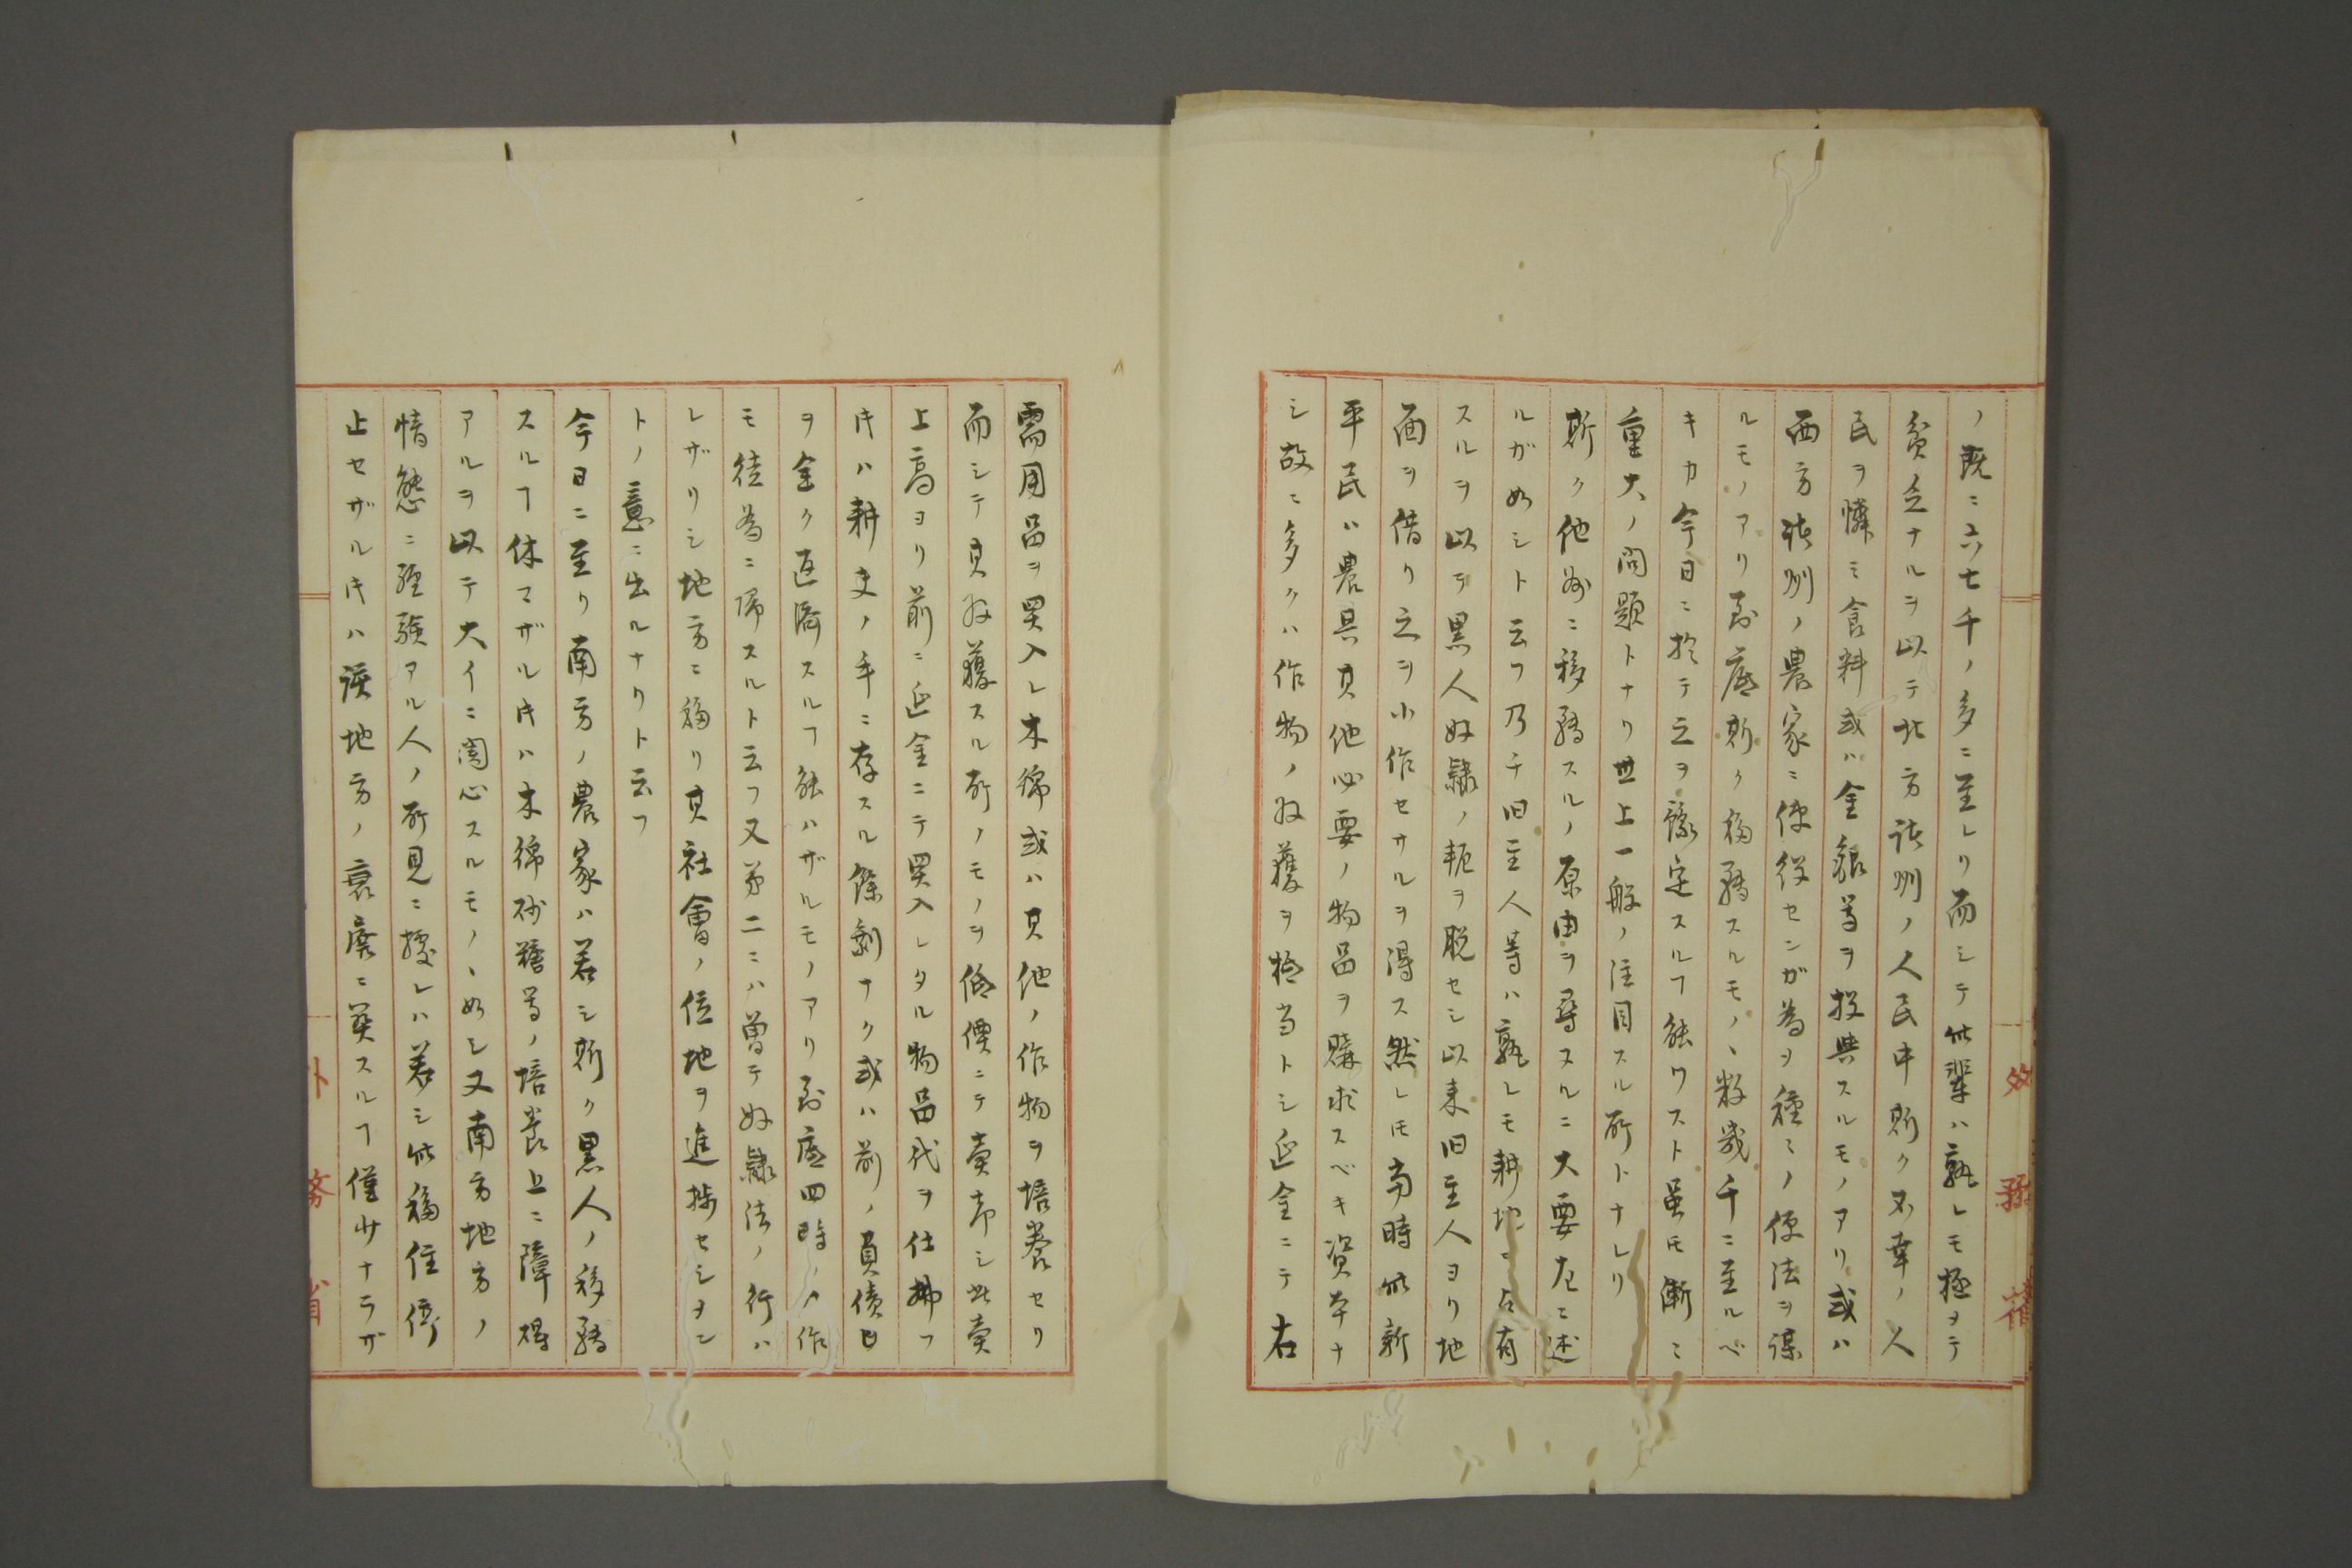 ノ既ニ六七千ノ多ニ至レリ而シテ此輩ハ孰レモ極ヲテ
貧乏ナルヲ以テ北方諸州ノ人民中斯ク不幸ノ人
民ヲ憐ミ食料或ハ金銀等ヲ投与スルモノアリ或ハ
西方諸州ノ農家ニ使役センガ為ヲ種々ノ便法ヲ謀
ルモノアリ到底斯ク移轉スルモノヽ数幾千ニ至ルベ
キカ今日ニ於テ之ヲ豫定スルヿ能ワスト虽𪜈漸ニ
重大ノ問題トナリ世上一般ノ注目スル所トナレリ
斯ク他州ニ移轉スルノ原由ヲ尋スルニ大要左ニ述
ルガ如シト云フ乃チ旧主人等ハ孰レモ耕地ヲ占有
スルヲ以テ黒人奴隷ノ軛ヲ脱セシ以来旧主人ヨリ地
面ヲ借リ之ヲ小作セサルヲ得ス然レ𪜈当時此新
平民ハ農具其他必要ノ物品ヲ購求スベキ資本ナ
シ故ニ多クハ作物ノ収獲ヲ抵当トシ延金ニテ右
需用品ヲ買入レ木綿或ハ其他ノ作物ヲ培養セリ
而シテ其収獲スル所ノモノヲ低價ニテ賣却シ此賣
上高ヨリ前ニ延金ニテ買入レタル物品代ヲ仕拂フ
𪜈ハ耕夫ノ手ニ存スル餘剰ナク或ハ前ノ負債𪜈
ヲ全ク返濟スルヿ能ハザルモノアリ到底四時ノ作
モ徒為ニ帰スルト云フ又第二ニハ曽テ奴隷法ノ行ハ
レザリシ地方ニ移リ其社會ノ位地ヲ進捗セシヲン
トノ意ニ出ルナリト云フ
今日ニ至リ南方ノ農家ハ若シ斯ク黒人ノ移轉
スルヿ休マザル𪜈ハ木綿砂糖等ノ培養上ニ障碍
アルヲ以テ大イニ関心スルモノヽ如シ又南方地方ノ
情態ニ經験アル人ノ所見ニ據レハ若シ此移住停
止セザル𪜈ハ該地方ノ衰廃ニ莫スルヿ僅少ナラザ
外務省